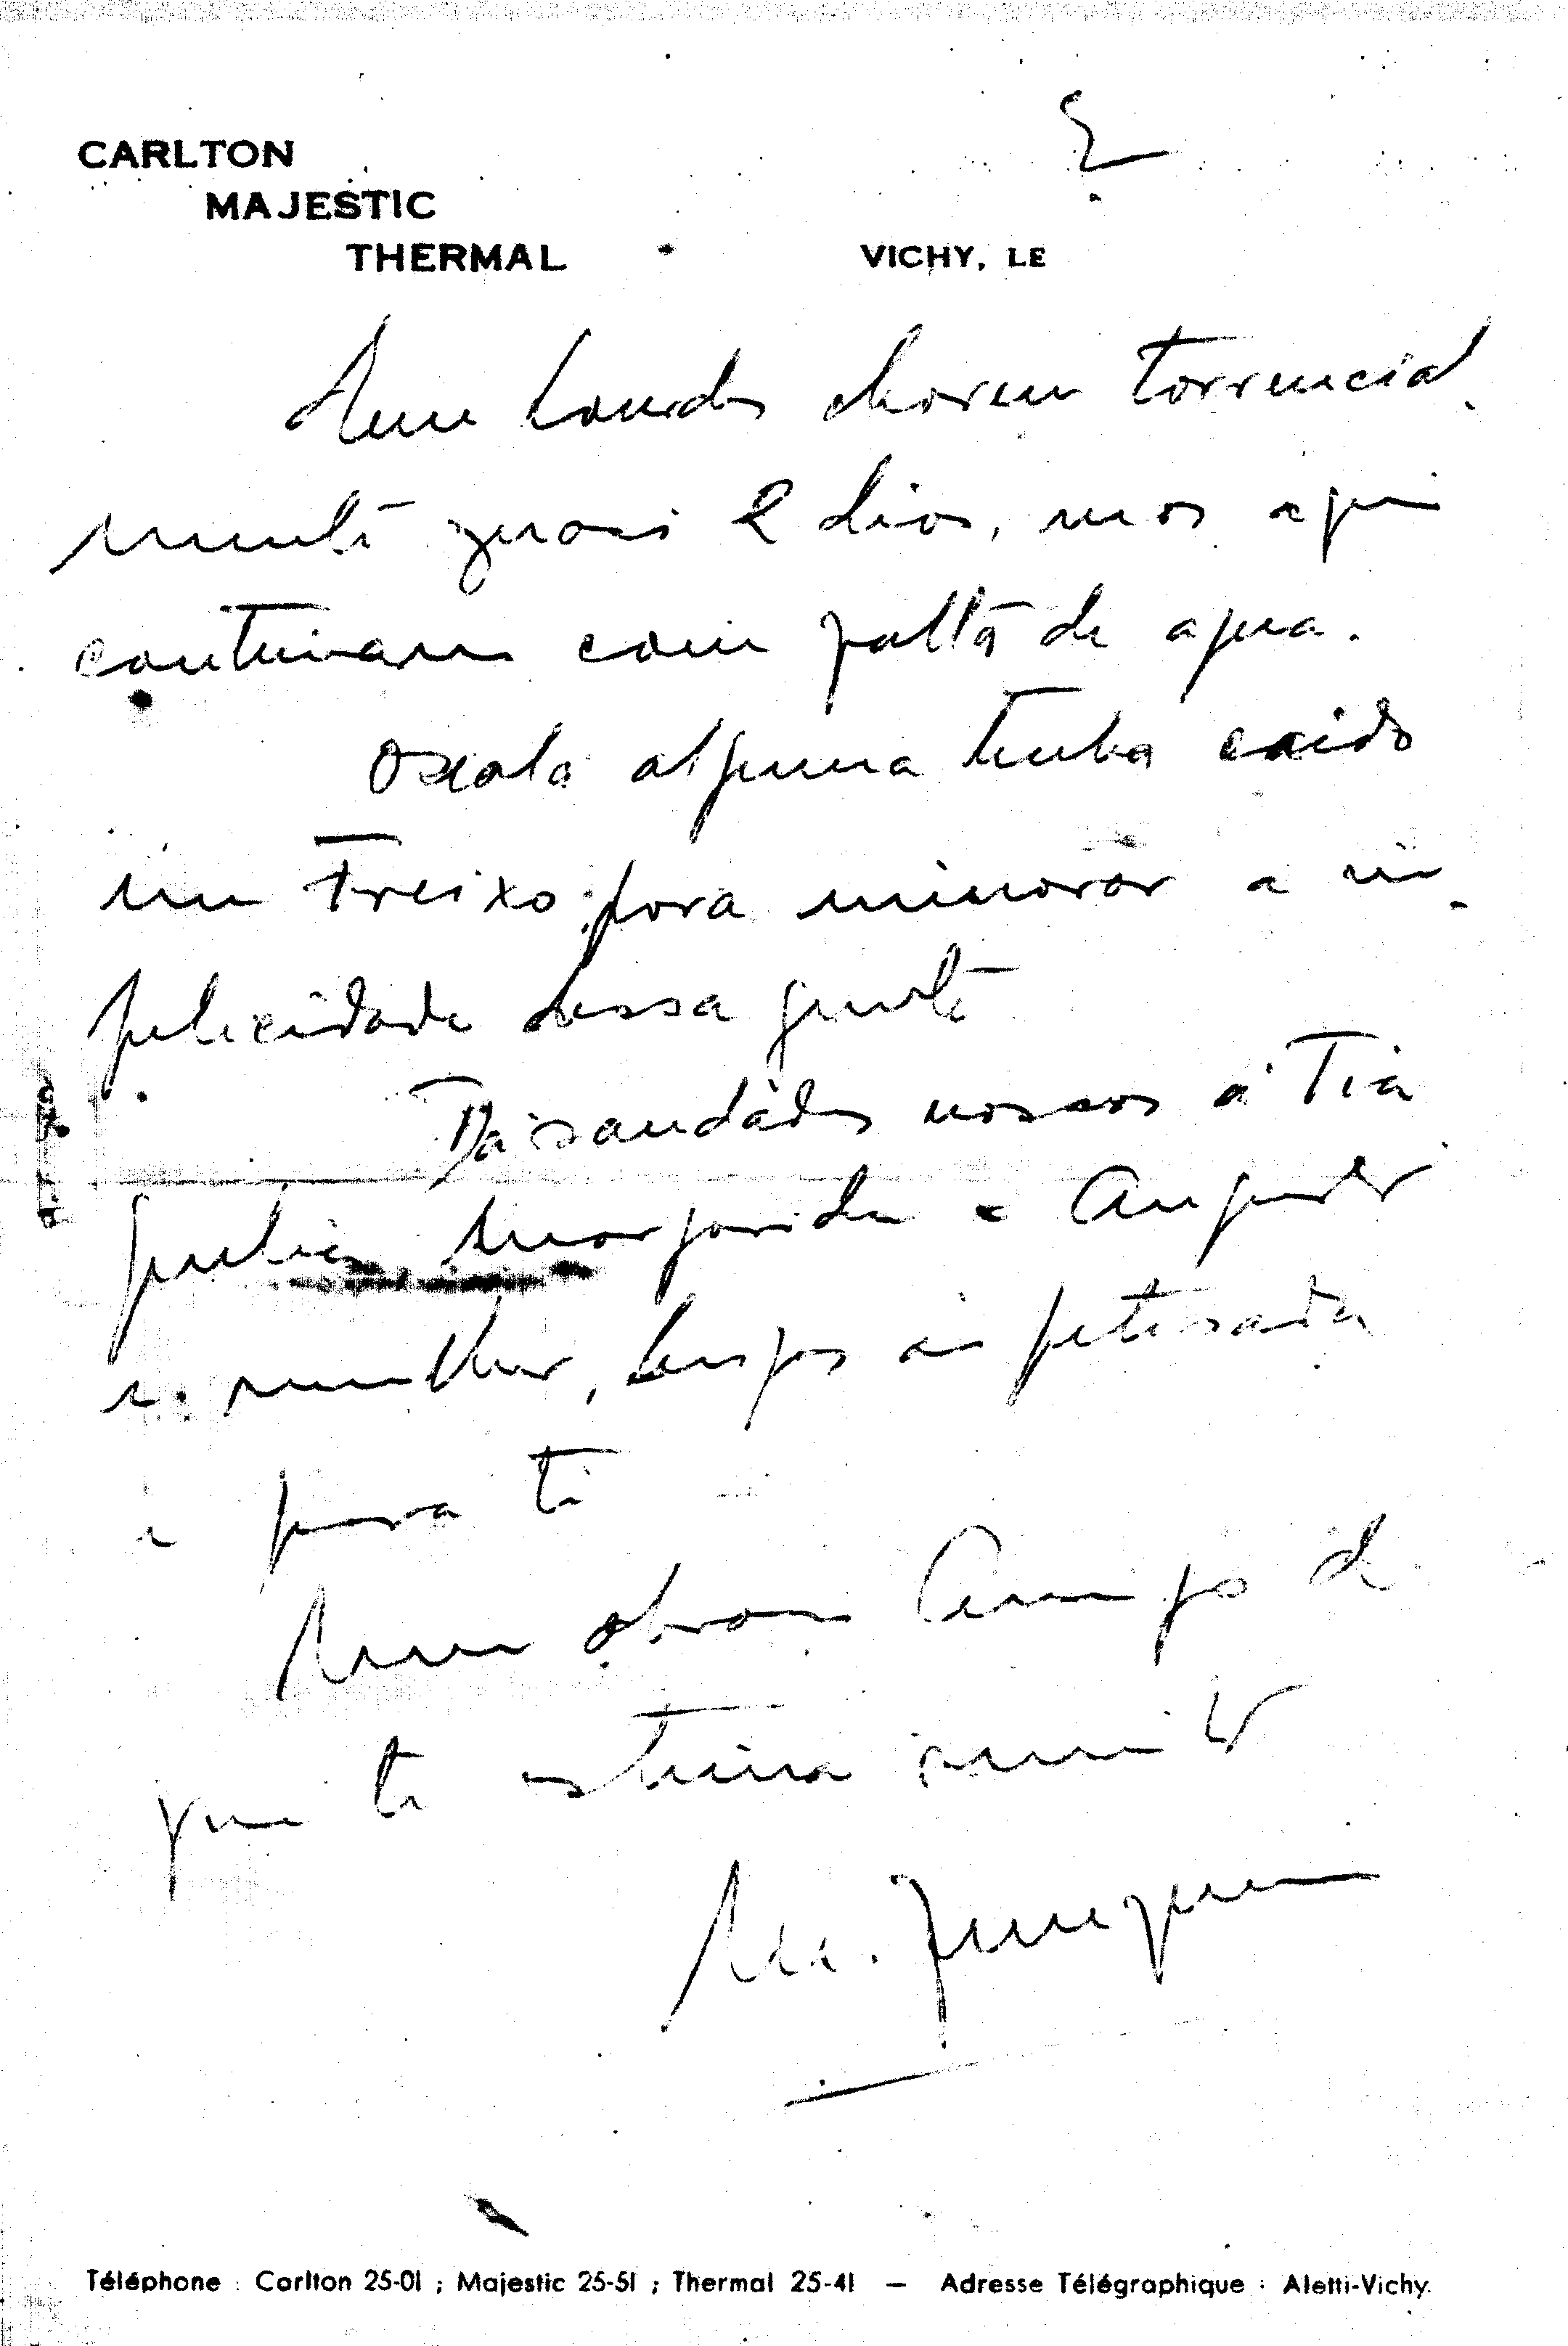 2
CARLTON
MAJESTIC
THERMAL
VICHY, LE
Em Lourdes choveu torrencial-
mente quasi 2 dias, mas aqui
continuam com falta de agua.
Oxalá alguma tenha caido
em Freixo para minorar a in-
felicidade dessa gente
Dá saudades nossas á Tia
Julia, Margarida e Augusto
e mulher, beijos á petizada
e para ti
um abraço Amigo de
que te estima muito
Junqueiro
Téléphone : Carlton 25-01 ; Majestic 25-51 ; Thermal 25-41 — Adresse Télégraphique : Aletti-Vichy.